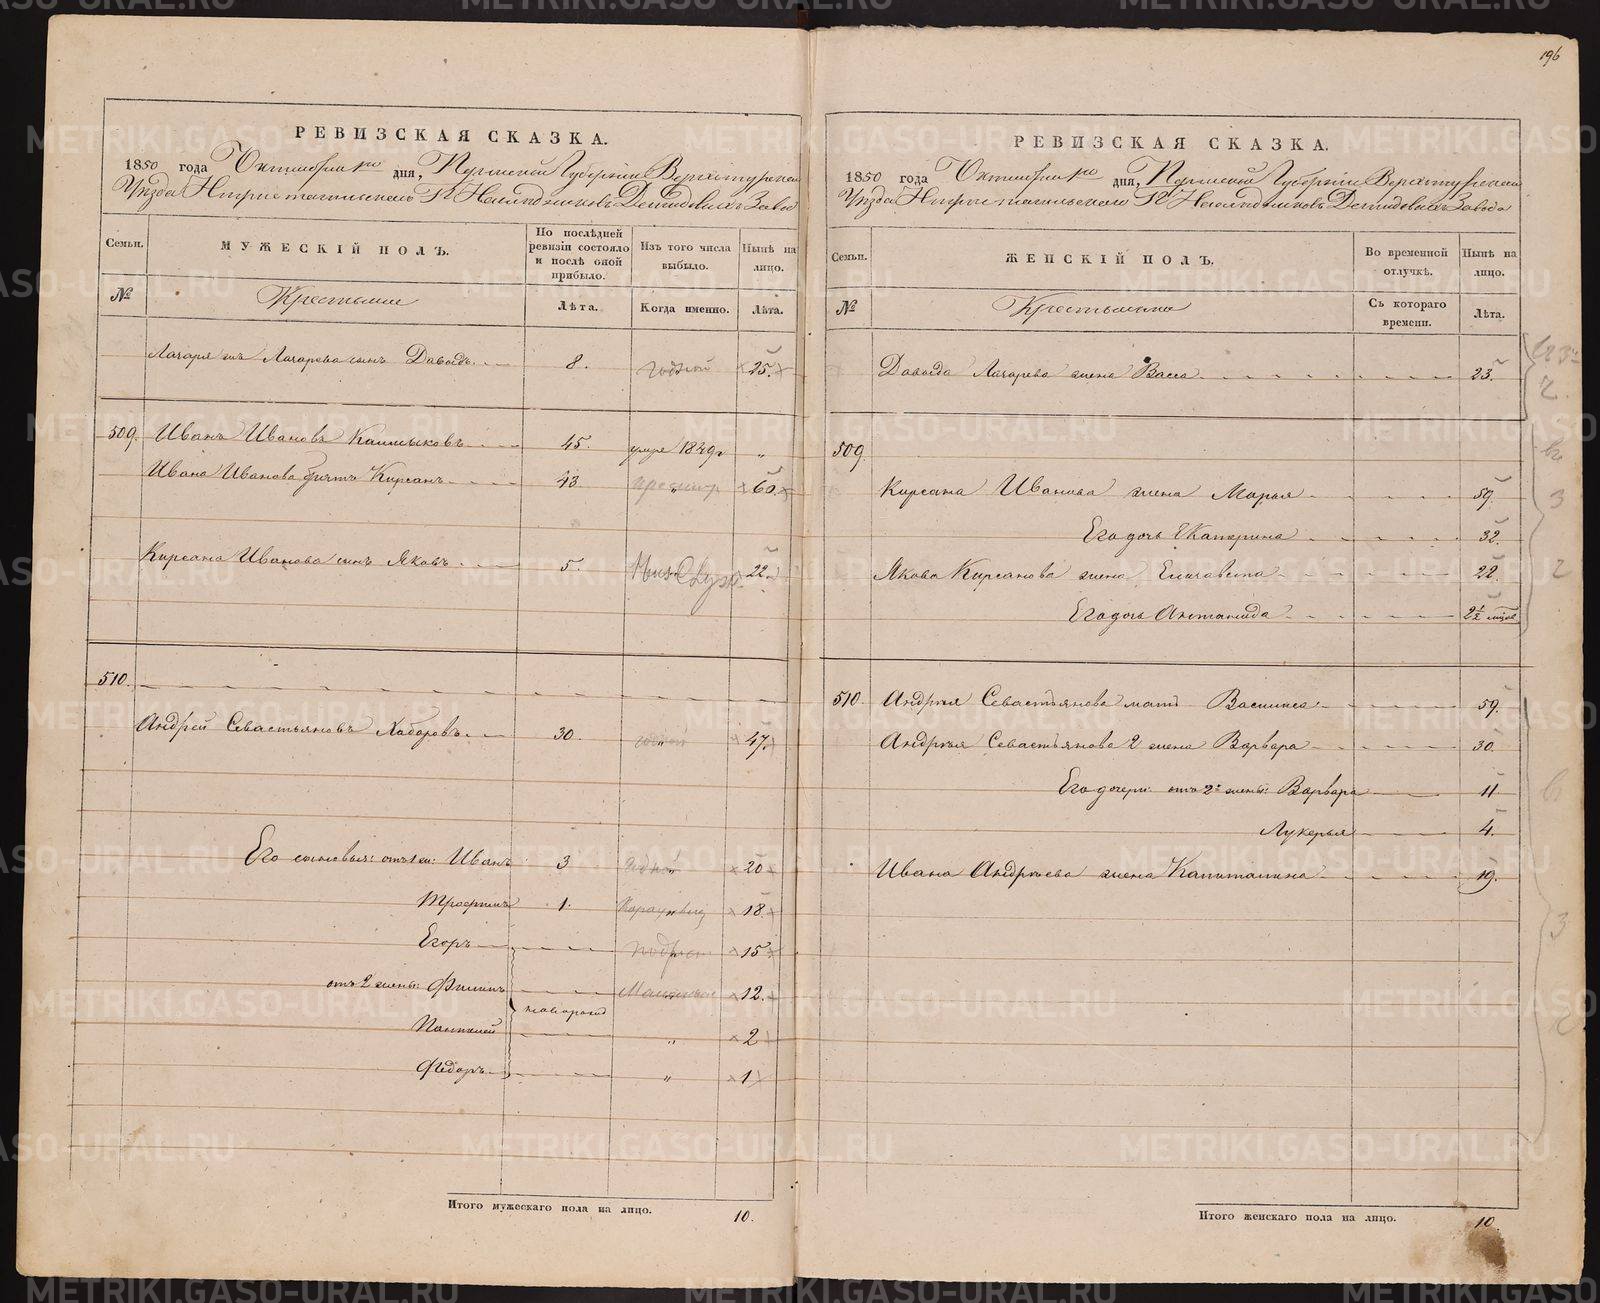 196
РЕВИЗСКАЯ СКАЗКА.
1850 года Октября дня, Пермской Губернии Верхотурскаго
Уѣзда Нижнетагильскаго Гг Наслѣдниковъ Демидовыхъ Завода
Семьи. МУЖЕСКІЙ ПОЛЪ. По послѣдней ревизіи состояло и послѣ оной прибыло. Изъ того числа выбыло. Нынѣ на лицо.
№ Крестьяне Лѣта. Когда именно. Лѣта.
Лазаря сынъ Давыдъ 8. годной 25.
509. Иванъ Ивановъ Калмыковъ 45. умре 1849 "
Ивана Иванова братъ Кирсанъ 43 " 60.
Кирсана Иванова сынъ Яковъ 5. 22.
510.
Андрей Севастьяновъ Хабаровъ 30. годной 47.
Его сыновья: отъ 1 жен: Иванъ 3 " 20
Трофимъ 1. " 18.
Егоръ 15
отъ 2 жены: Филипъ 12.
Пантелей " 2
Федоръ " 1
Итого мужескаго пола на лицо. 10.
РЕВИЗСКАЯ СКАЗКА.
1850 года Октября дня, Пермской Губерніи Верхотурскаго
Уѣзда Нижнетагильскаго Гг Наслѣдниковъ Демидовыхъ Завода
Семьи. ЖЕНСКІЙ ПОЛЪ. Во временной отлучкѣ. Нынѣ на лицо.
№ Крестьянки Съ котораго времени. Лѣта.
Давыда Лазарева жена Васса 23.
509.
Кирсана Иванова жена Марья 59.
Его дочь Катерина 32.
Якова Кирсанова жена Елизавета 22.
Его дочь 2½
510. Андрея Севастьянова мать Василиса 59.
Андрея Севастьянова 2 жена Варвара 30.
Его дочери: отъ 2й жены: Варвара 11
Лукерья 4.
Ивана Андреева жена Капиталина 19.
Итого женскаго пола на лицо. 10
METRIKI.GASO-URAL.RU